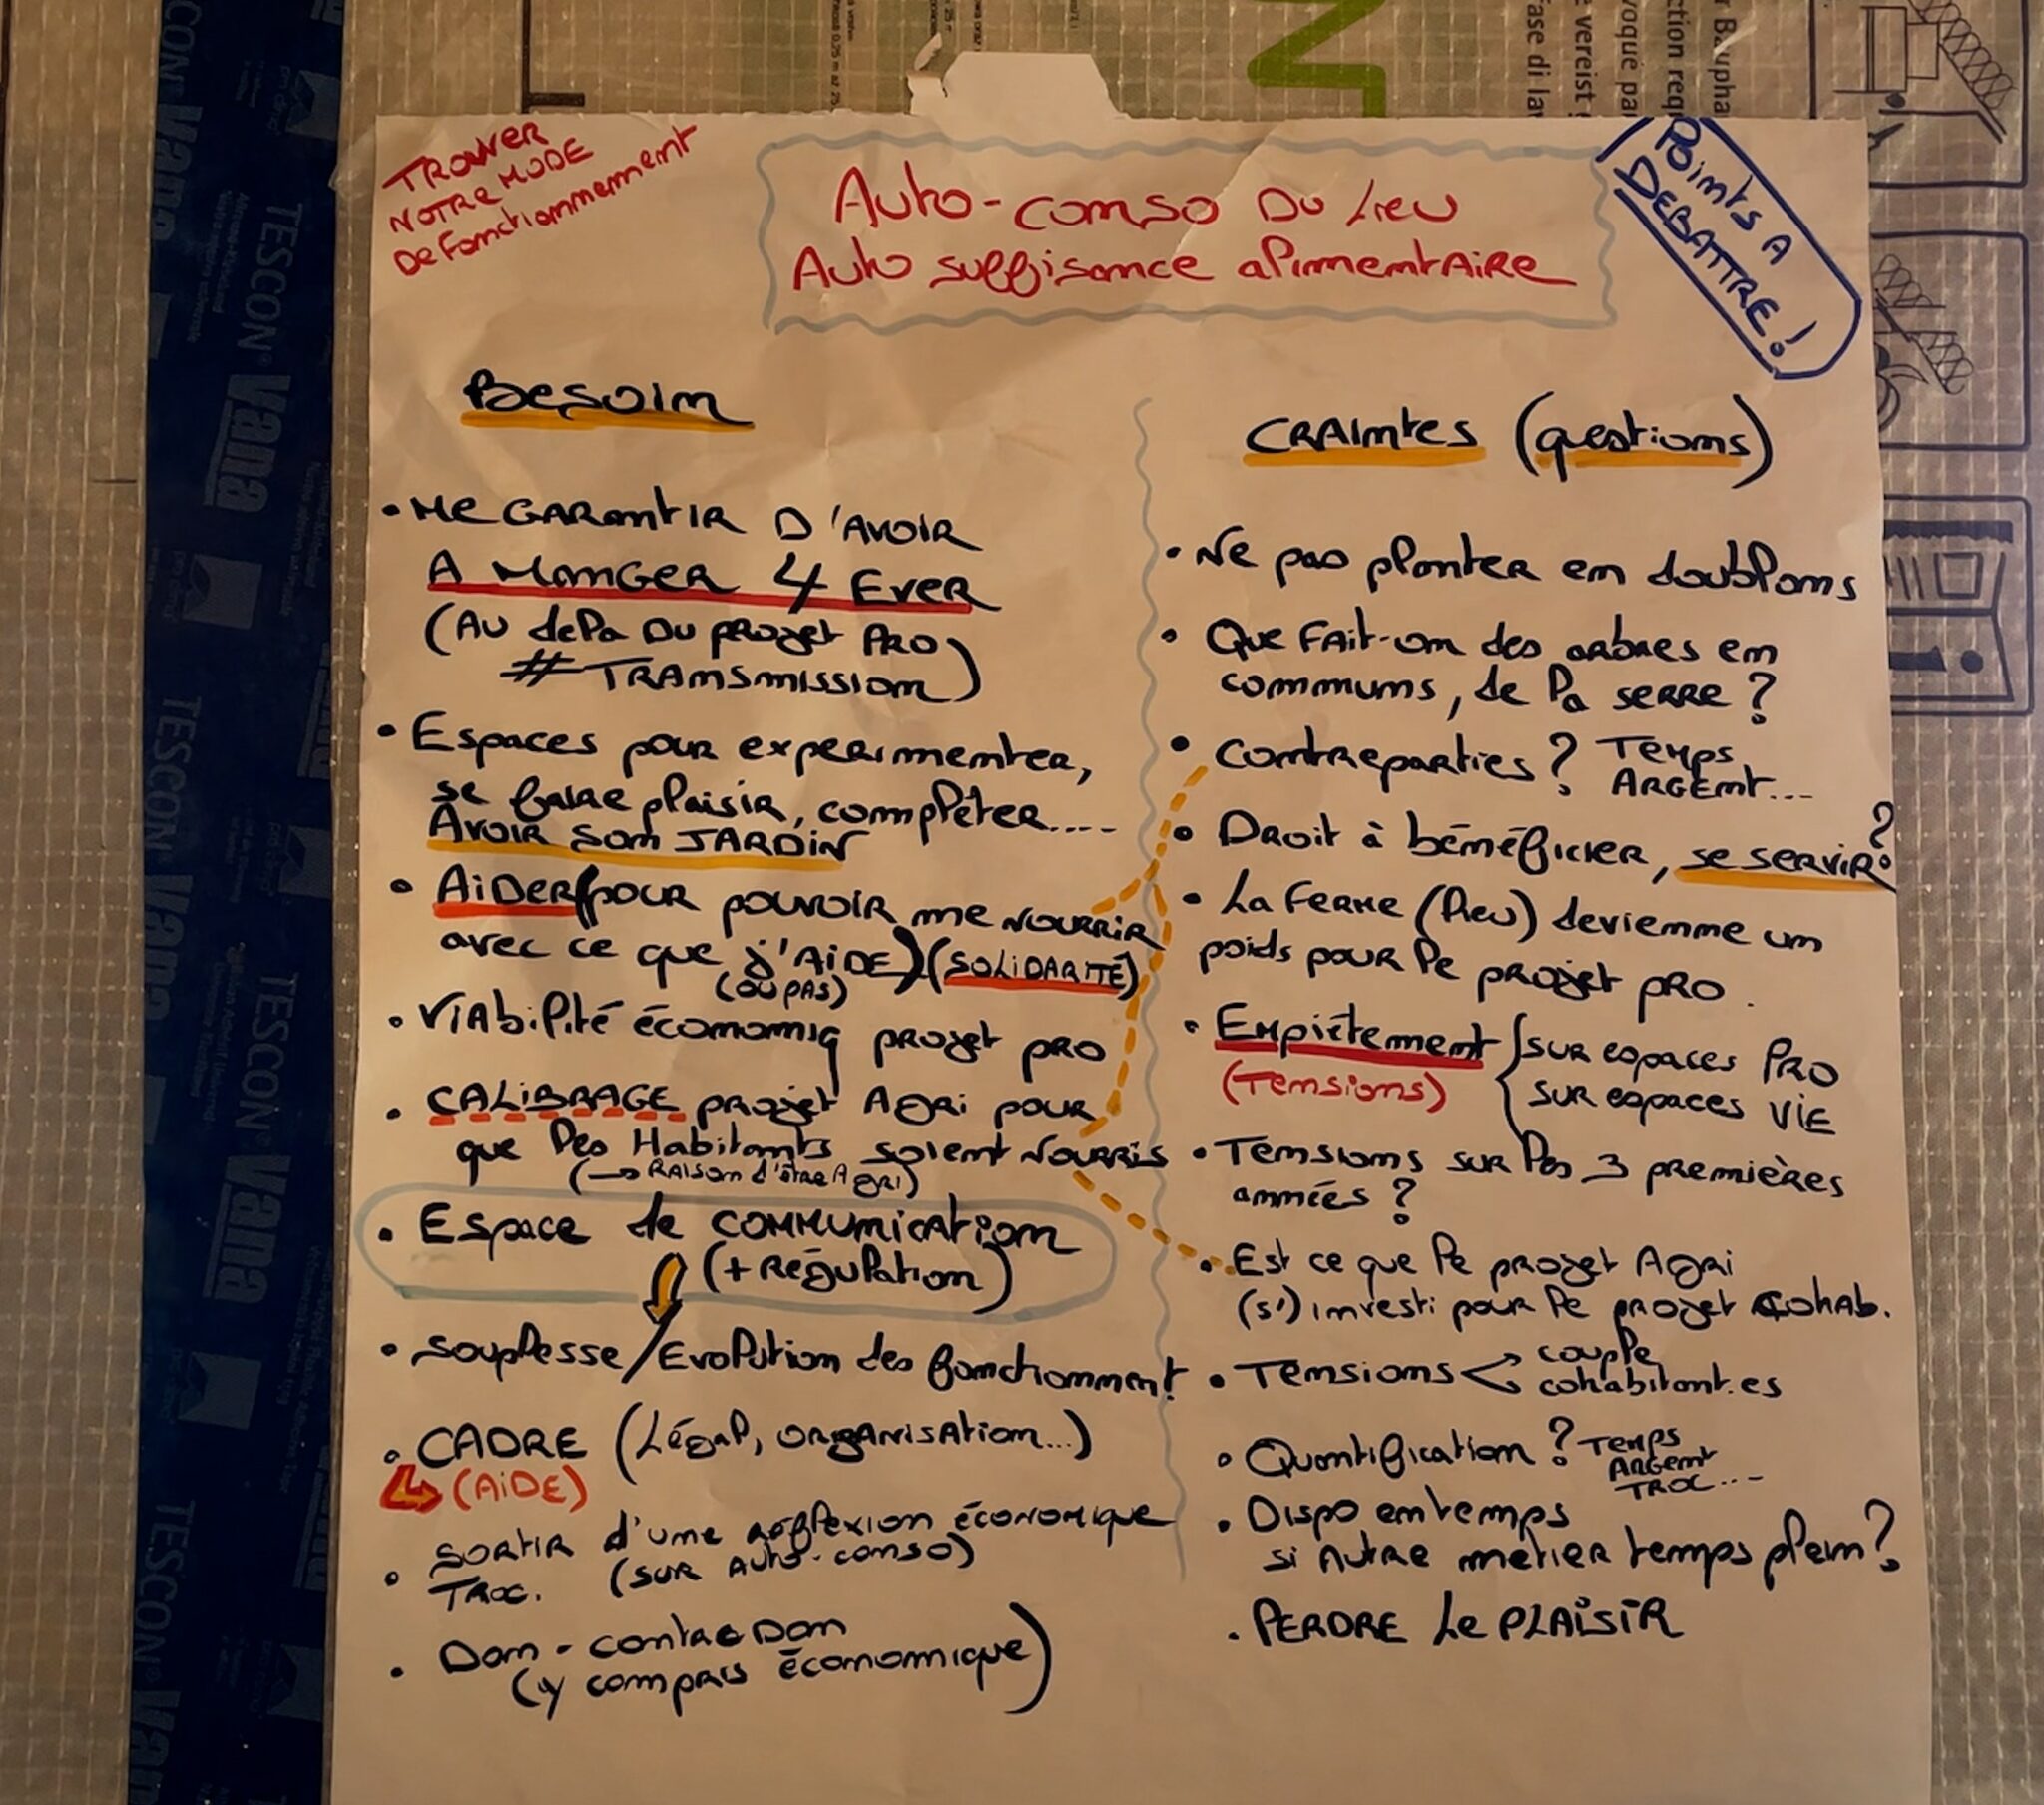 TROUVER
NOTRE MODE
De Fonctionnement
Auto-conso Du Lieu
Auto suffisance alimentaire
Points A
DEBATTRE !
Besoin
• Me GARANTIR D'AVOIR
A MANGER 4 EVER
(Au delà Du projet PRO
# TRANSmission)
• Espaces pour experimenter,
se faire plaisir, compléter....
AVOIR son JARDIN
• AiDER (pour pouvoir me NOURRIR
avec ce que j'AiDE) (SOLIDARITÉ)
(OU PAS)
• Viabilité économiq projet pro
• CALIBRAGE projet Agri pour
que les Habitants soient Nourris
(→ Raison d'être Agri)
• Espace de communication
(+ Régulation)
• Souplesse / Evolution des fonctionnment
• CADRE (Légal, organisation...)
(AiDE)
• SORTIR d'une réflexion économique
TROC. (sur auto-conso)
• Don - contre Don
(y compris économique)
CRAINTES (questions)
• Ne pas planter en doublons
• Que Fait-on des arbres en
communs, de la serre ?
• Contreparties ? Temps
ARGENT...
• Droit à bénéficier, se servir ?
• La Ferme (lieu) devienne un
poids pour le projet pro.
• Empiétement { sur espaces PRO
(Tensions) sur espaces VIE
• Tensions sur les 3 premières
années ?
• Est ce que le projet Agri
(s') investi pour le projet cohab.
• Tensions < couple
cohabitant.es
• Quantification ? Temps
ARGENT
TROC...
• Dispo en temps
si Autre métier temps plein ?
• PERDRE Le PLAISIR
TESCON® Vana
TESCON® Vana
TESCON® Vana
TESCON Vana